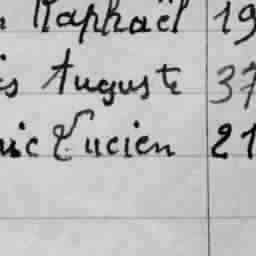 Raphaël 19
is Auguste 37
ic Lucien 21